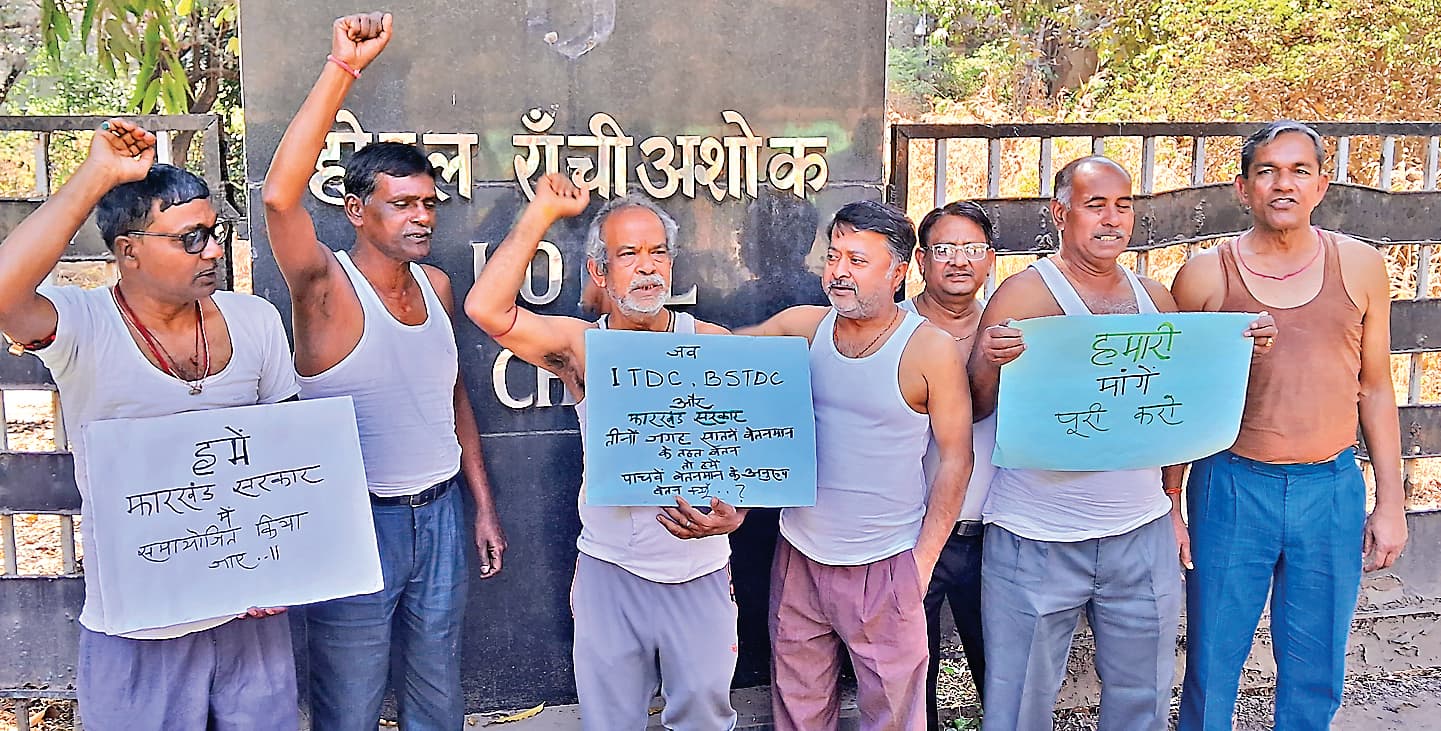 होटल राँची अशोक
हमें
झारखंड सरकार
में
समायोजित किया
जाए..!!
जब
ITDC, BSTDC
और
झारखंड सरकार
तीनों जगह सातवें वेतनमान
के तहत वेतन
तो हमें
पाचवें वेतनमान के अनुरूप
वेतन क्यूँ...?
हमारी
मांगें
पूरी करो